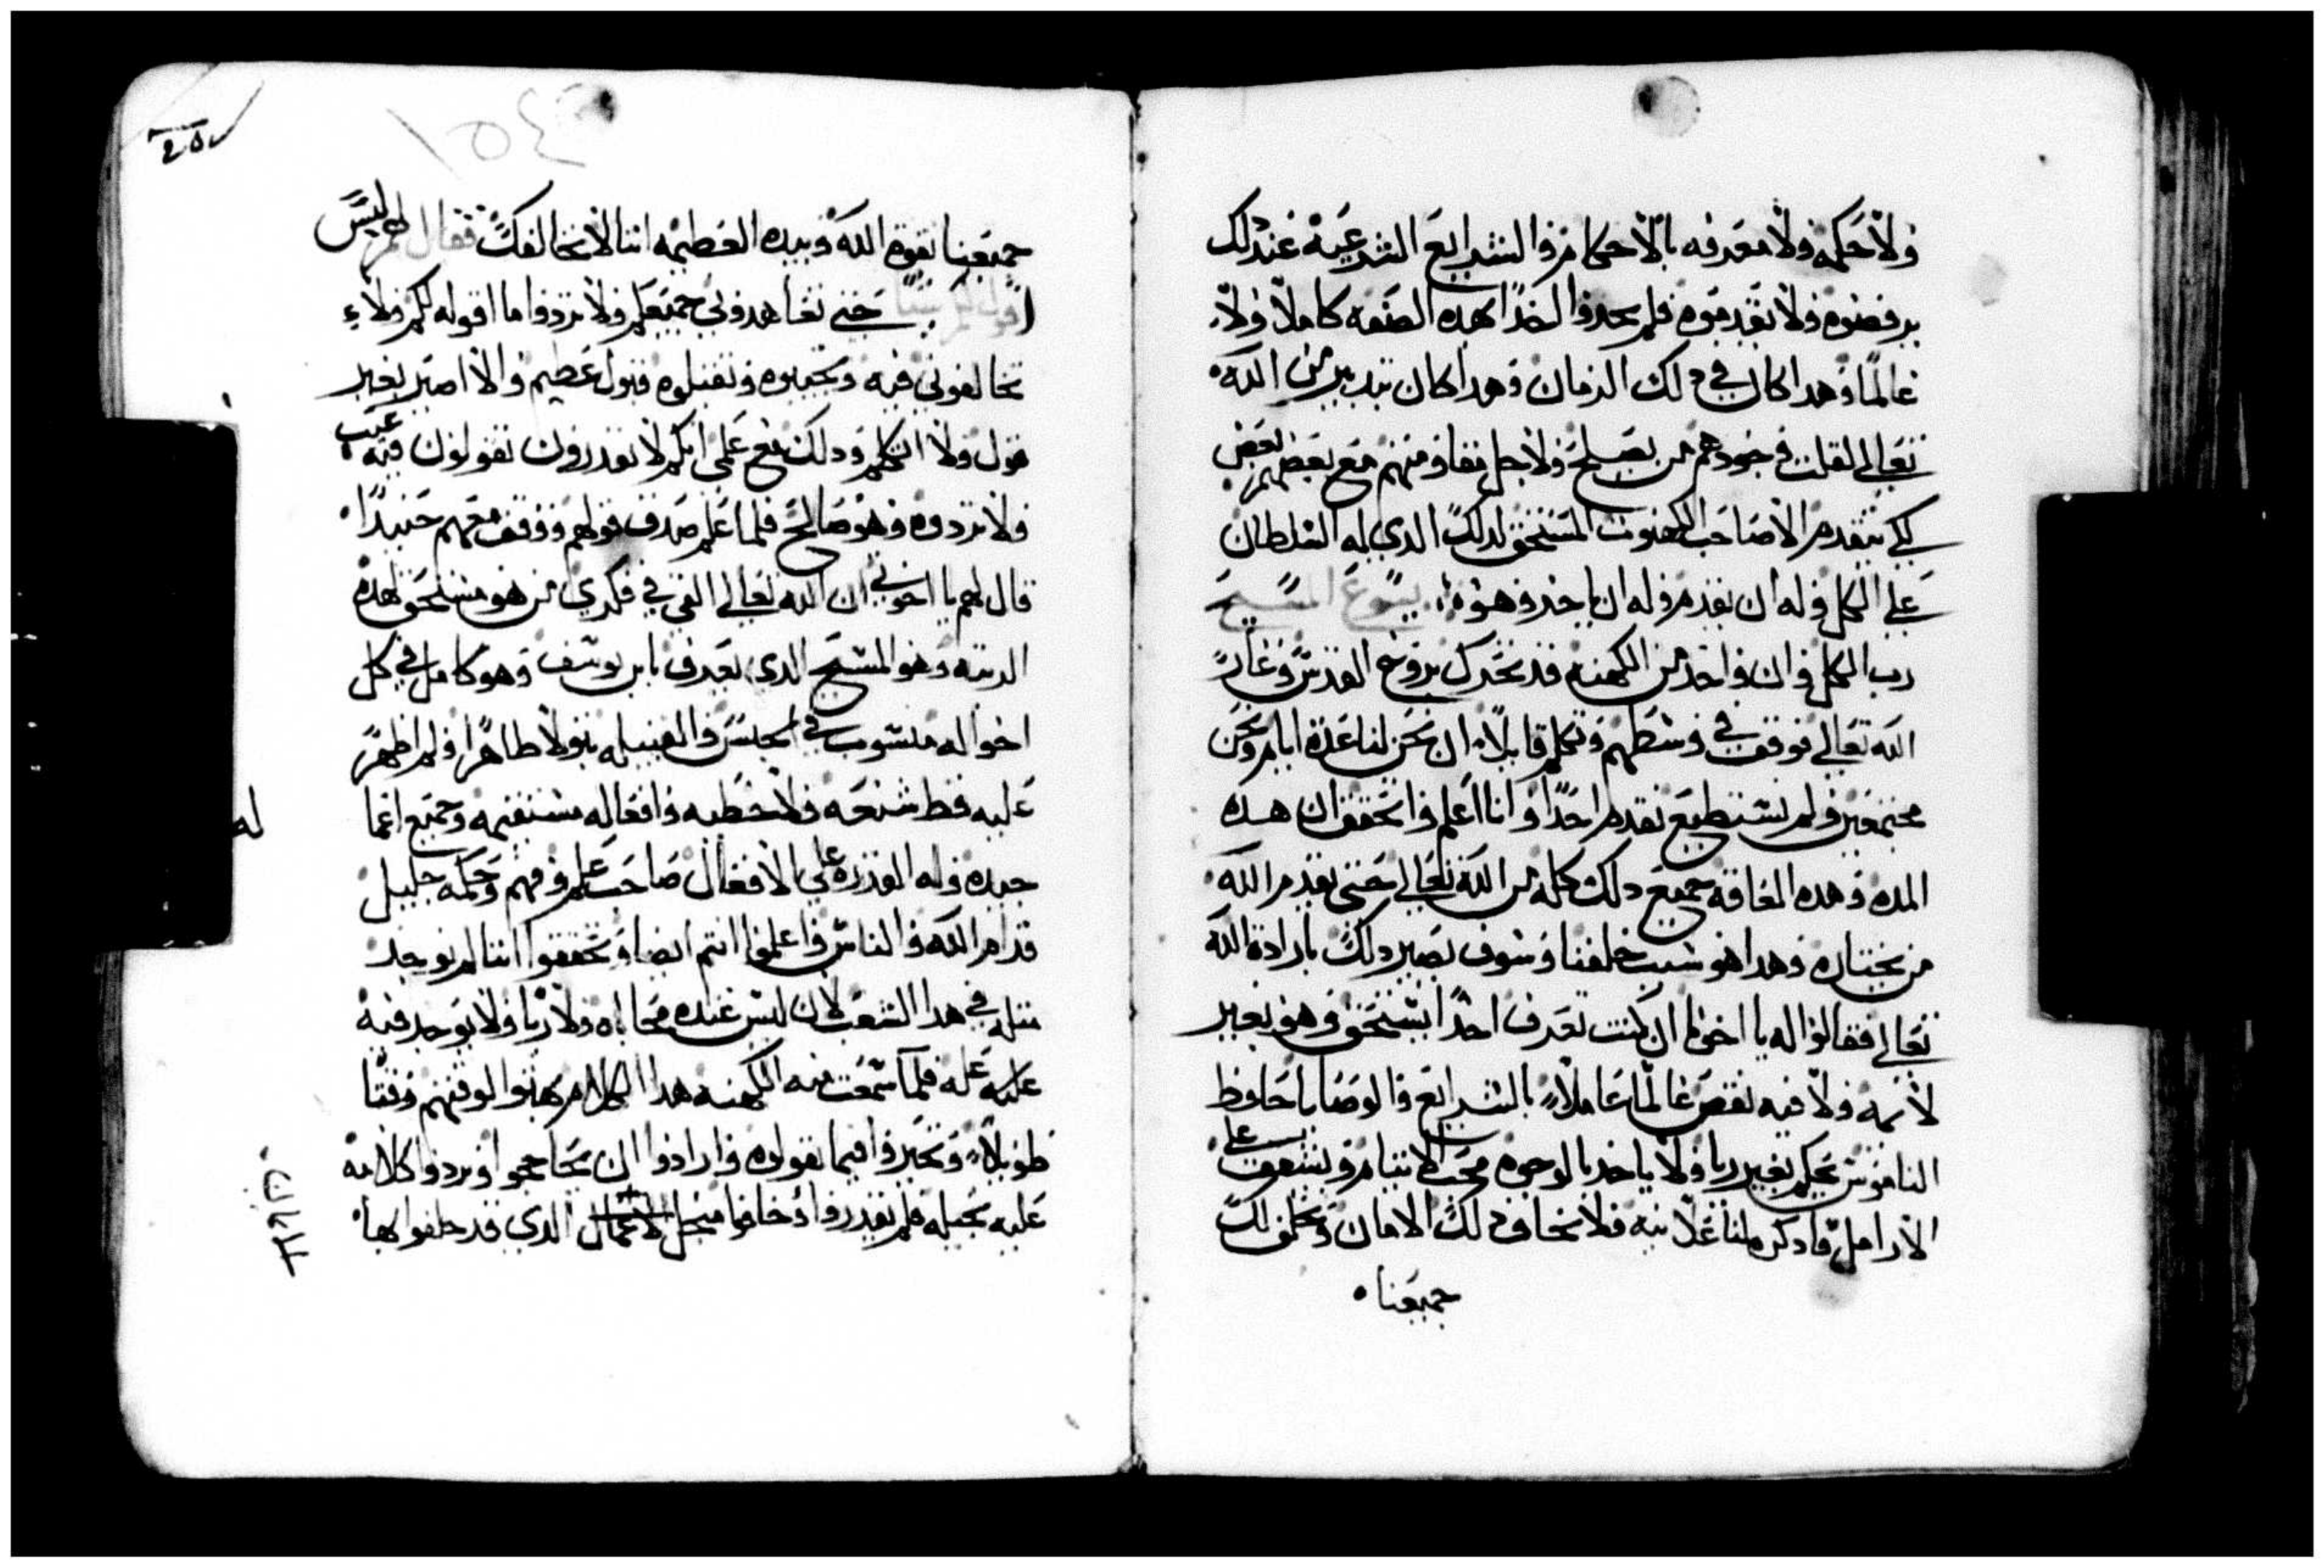 ولا حكمه ولا معرفه بالاحكام والشرايع الشرعيه عند ذلك
يرفضوه ولا يقدموه فلم يجدوا احدًا بهده الصفه كاملاً ولا
عالمًا وهدا كان في دلك الزمان وهدا كان بتدبير من الله
تعالى لقلت وجودهم من يصلح ولاجل مقاومتهم مع بعضهم بعض
لكي يتقدم الا صاحب الكهنوت المستحق لدلك الدي له السلطان
على الكل وله ان يقدم وله ان ياخد وهو يسوع المسيح
رب الكل وان واحد من الكهنه قد تحرك بروح القدس وغار
الله تعالى فوقف في وسطهم وتكلم قايلاً ان نحن لنا عدة ايام ونحن
مجتمعين ولم نستطيع نقدم احدًا وانا اعلم واتحقق ان هده
المده وهده العاقه جميع دلك كله من الله تعالى حتى يقدم الله
من يختاره وهدا هو سبب خلفنا وسوف يصير دلك بارادة الله
تعالى فقالوا له يا اخونا ان كنت تعرف احدًا يستحق وهو بغير
لايمه ولا فيه نقص عالمًا عاملاً بالشرايع والوصايا حافظ
الناموس يحكم بغير ريا ولا ياخد بالوجوه محب الايتام ويشفق على
الارامل فادكره لنا علانيه فلا تخاف ولك الامان ونحلف لك
جميعنا
جميعنا بقوة الله وبيده العظيمه اننا لا نخالفك فقال لهم ليس
اقول لكم شيئًا حتى تعاهدوني جميعكم ولا تردوا ما اقوله لكم ولاء
تخالفوني فيه وتجيبوه وتقبلوه قبول عظيم والا اصير بغير
قول ولا اتكلم ودلك مع علمي انكم لا تقدرون تقولون فيه عيب
ولا تردوه وهو صالح فلما علم صدق قولهم ووقف معهم جيدًا
قال لهم يا اخوتي ان الله تعالى القى في فكري من هو مستحق لهده
الرتبه وهو المسيح الدي يعرف بابن يوسف وهو كامل في كل
احواله منسوب في الجنس والقبيله بتولا طاهرًا ولم اظهر
عليه قط شنعه ولا خطيه وافعاله مستقيمه وجميع اعما
له
جيده وله القدره على الافعال صاحب علم وفهم وحكمه جليل
قدام الله والناس واعلموا انتم ايضا وتحققوا اننا لم نوجد
مثله في هدا الشعب لان ليس عنده محاباه ولا ريا ولا يوجد فيه
عليه عله فلما سمعت منه الكهنه هدا الكلام بهتوا لوقتهم وقتًا
طويلاً وتحيروا فيما يقولوه وارادوا ان يحاججوا او يردوا كلامه
عليه بحيله فلم يقدروا وخافوا من اجل الدي قد حلفوا بها